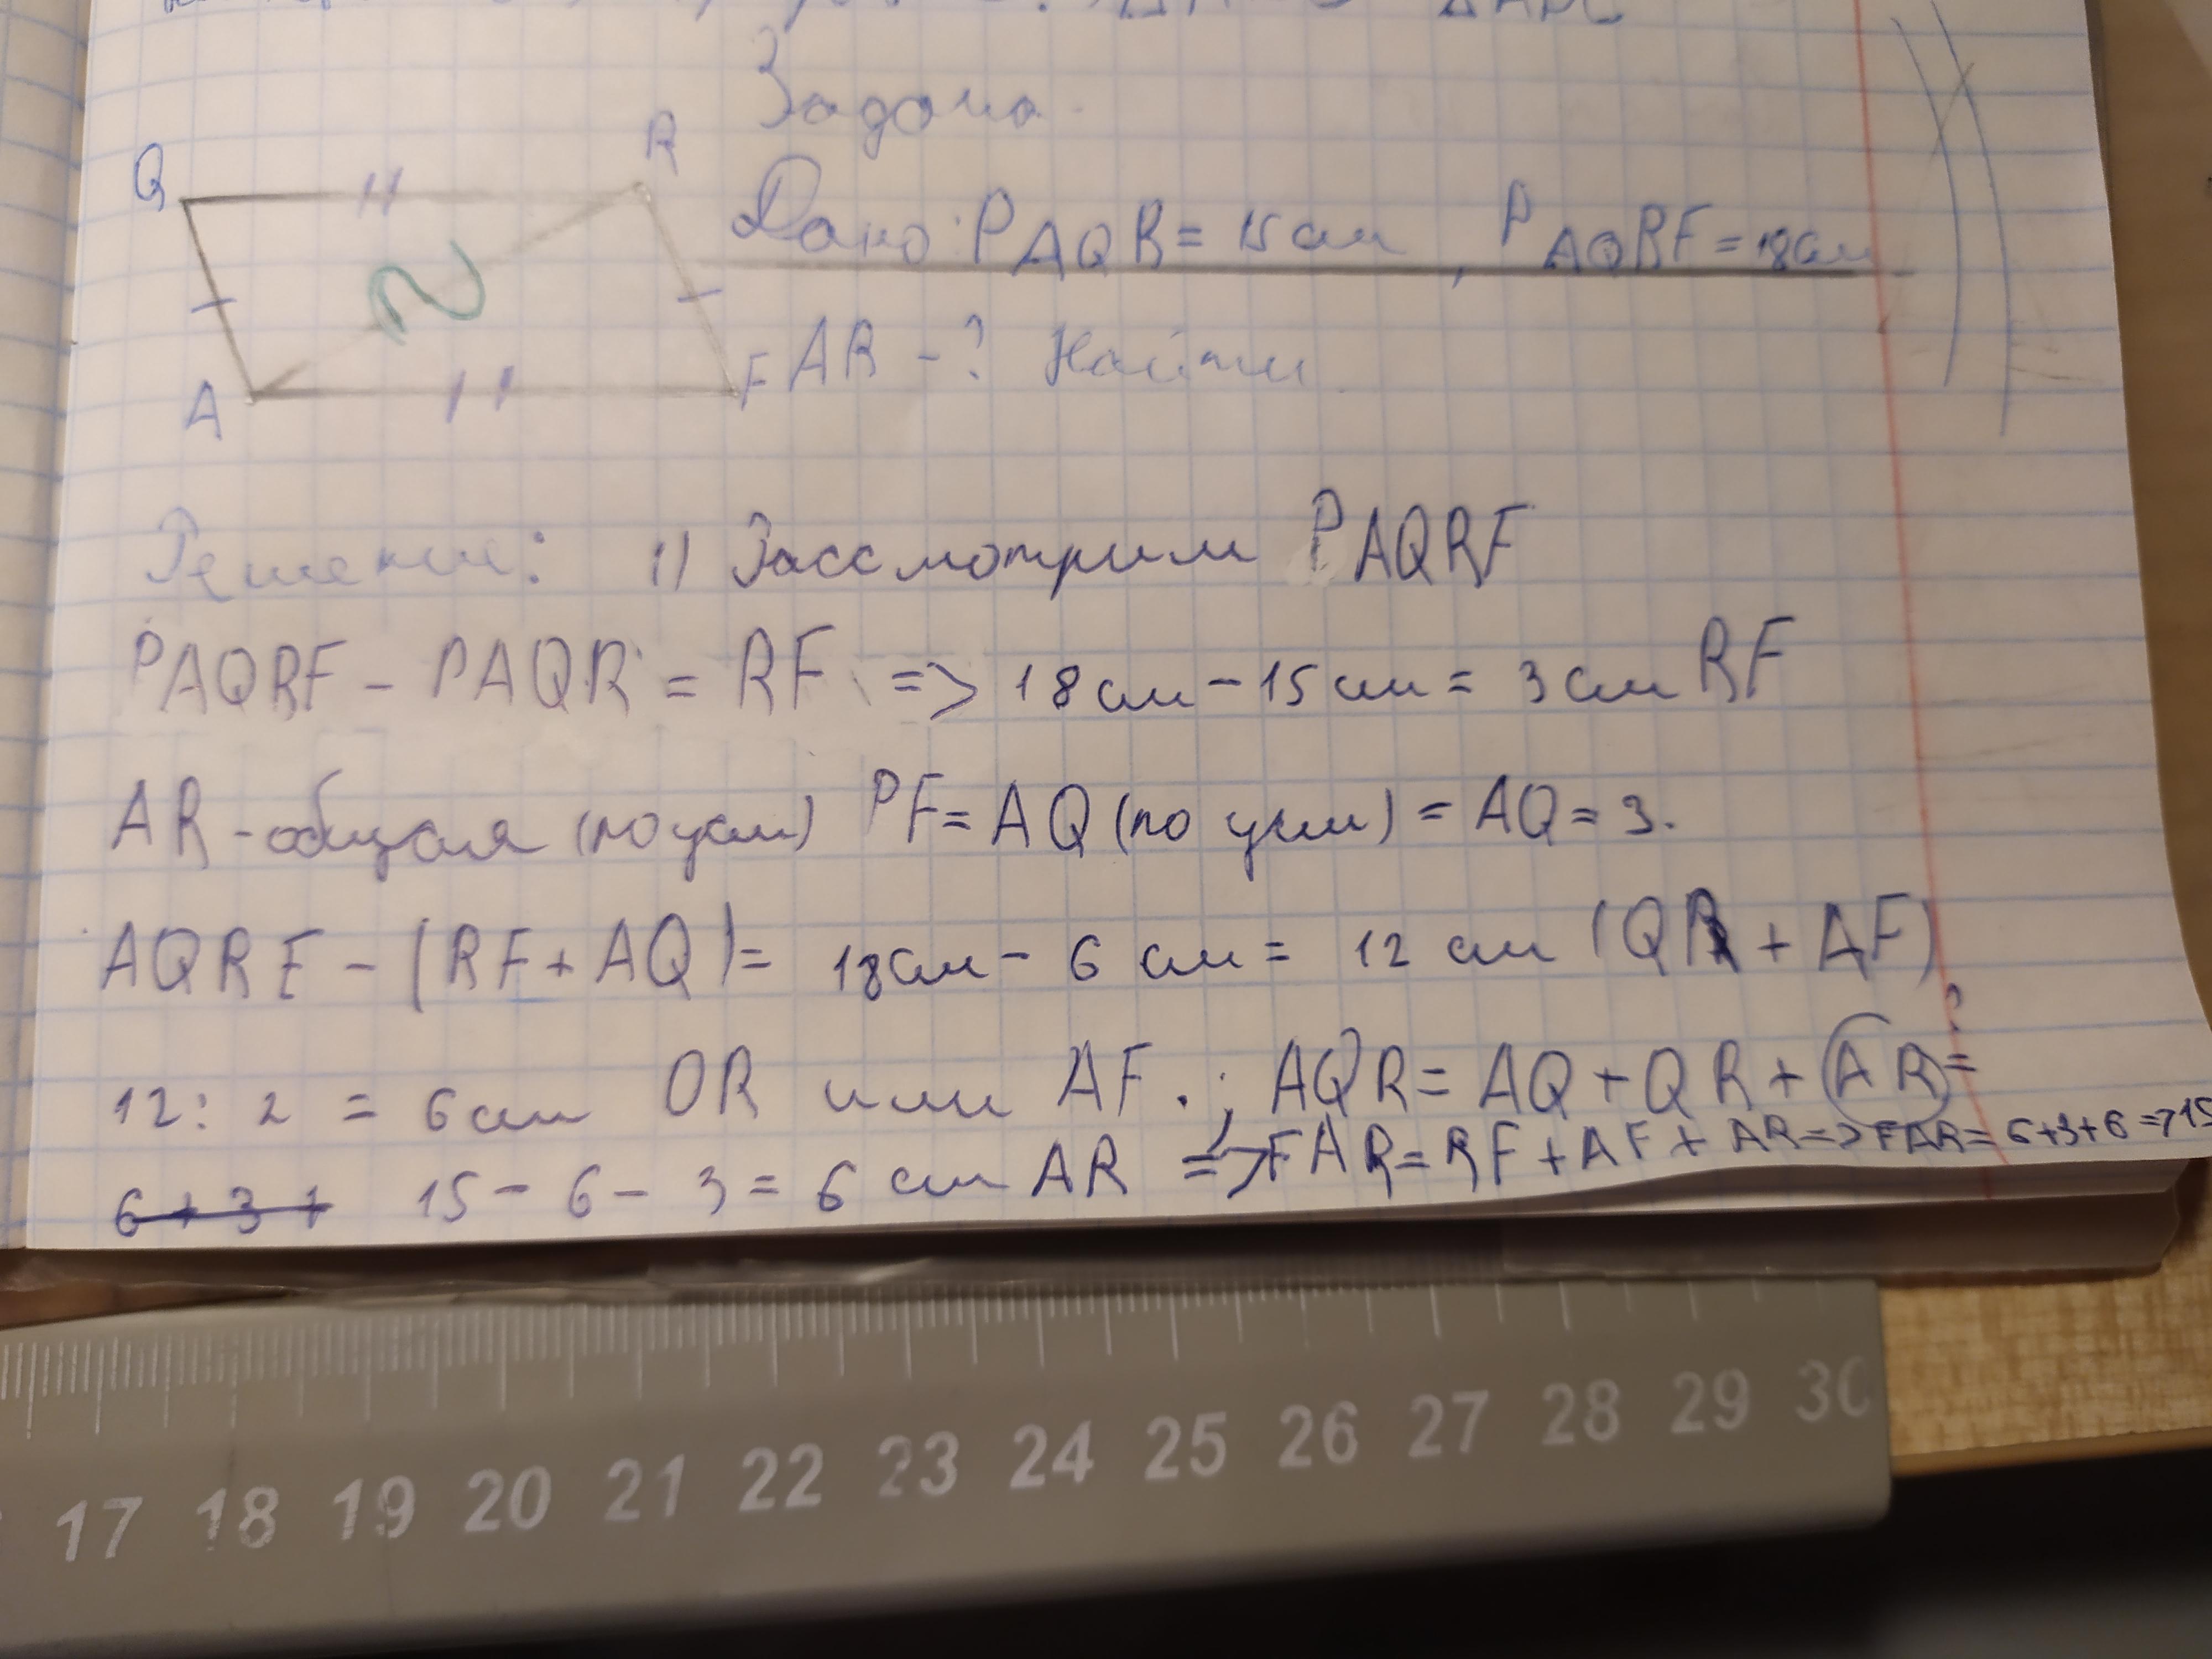 Задача.
Q
R
Дано: PAQR = 15 см, PAQRF = 18 см
A
F
AR - ? Найти.
Решение: 1) Рассмотрим PAQRF
PAQRF - PAQR = RF => 18 см - 15 см = 3 см RF
AR - общая (по усл) PF = AQ (по усл) = AQ = 3.
AQRF - (RF + AQ) = 18 см - 6 см = 12 см (QR + AF)
12 : 2 = 6 см QR или AF . ; AQR = AQ + QR + AR = ?
6 + 3 + 15 - 6 - 3 = 6 см AR => FAR = RF + AF + AR => FAR = 6+3+6 => 15
17 18 19 20 21 22 23 24 25 26 27 28 29 30